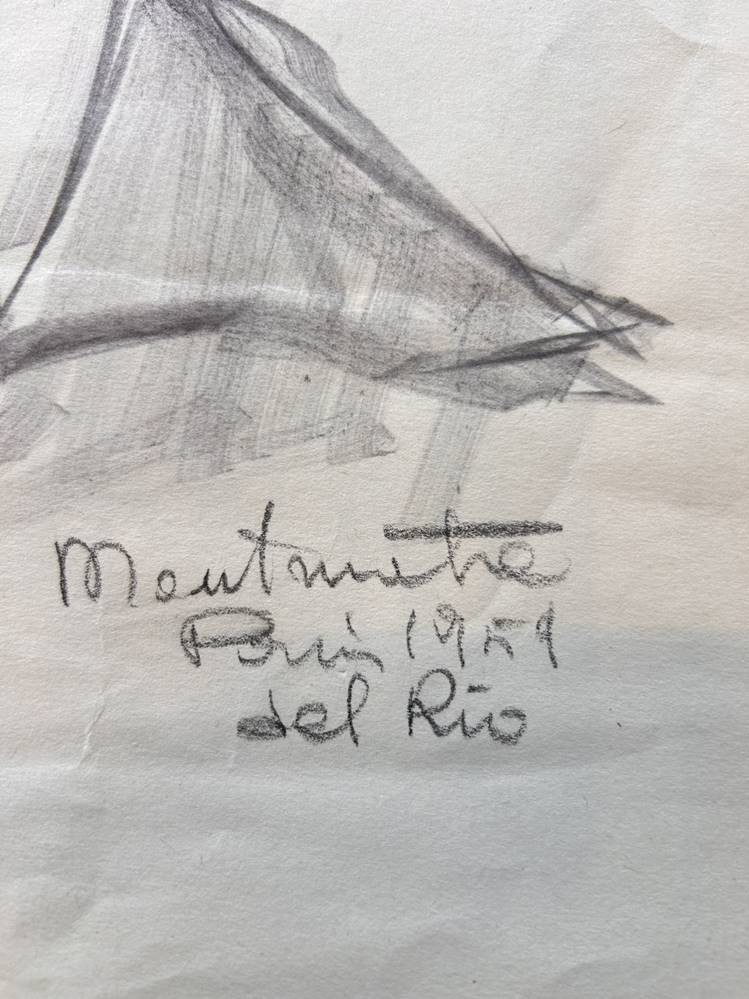 Montmatre
Paris 1959
del Rio